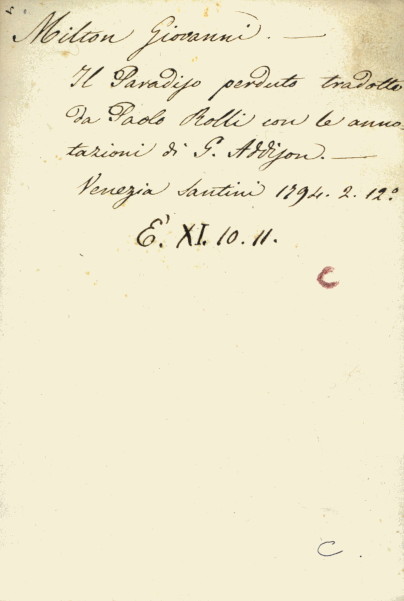 Milton Giovanni. —
Il Paradiso perduto tradotto
da Paolo Rolli con le anno-
tazioni di G. Addison. —
Venezia Santini 1794. 2. 12.º
E'. XI. 10. 11.
C
C.